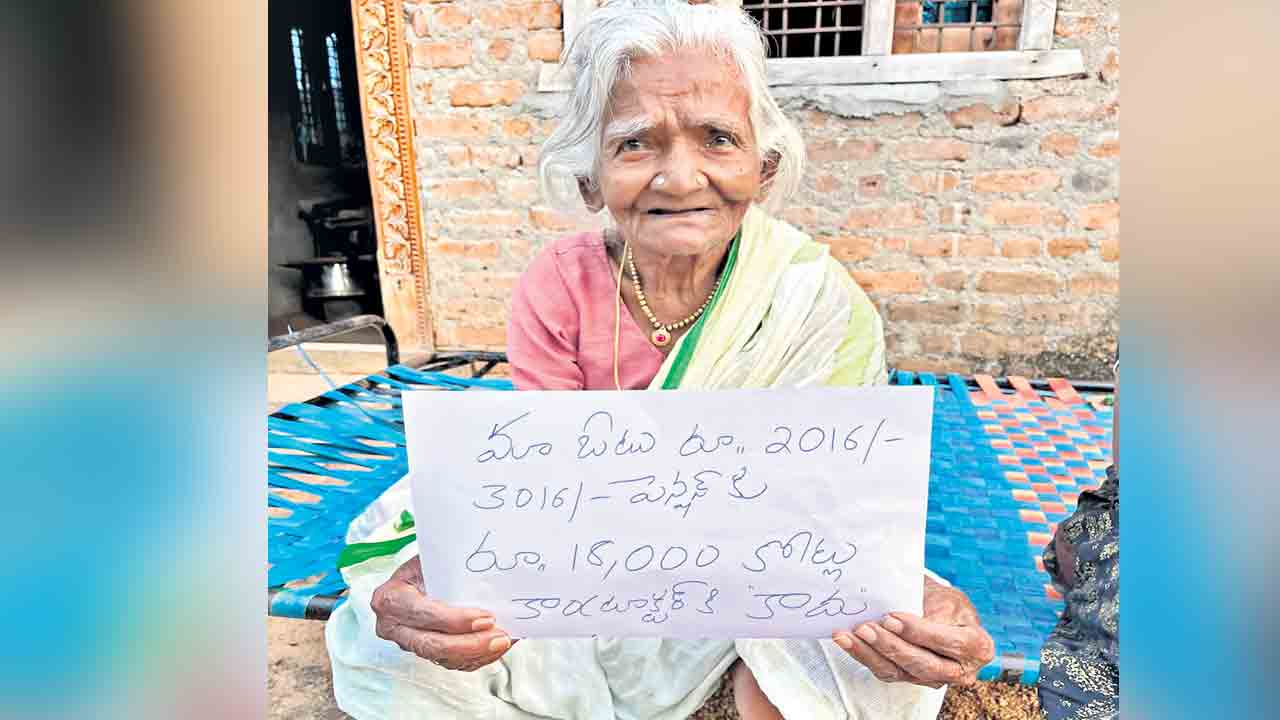 మా ఓటు రూ.. 2016/-
3016/- పెన్షన్ కు
రూ.. 18,000 కోట్లు
కాంట్రాక్టర్ కి "కాదు"